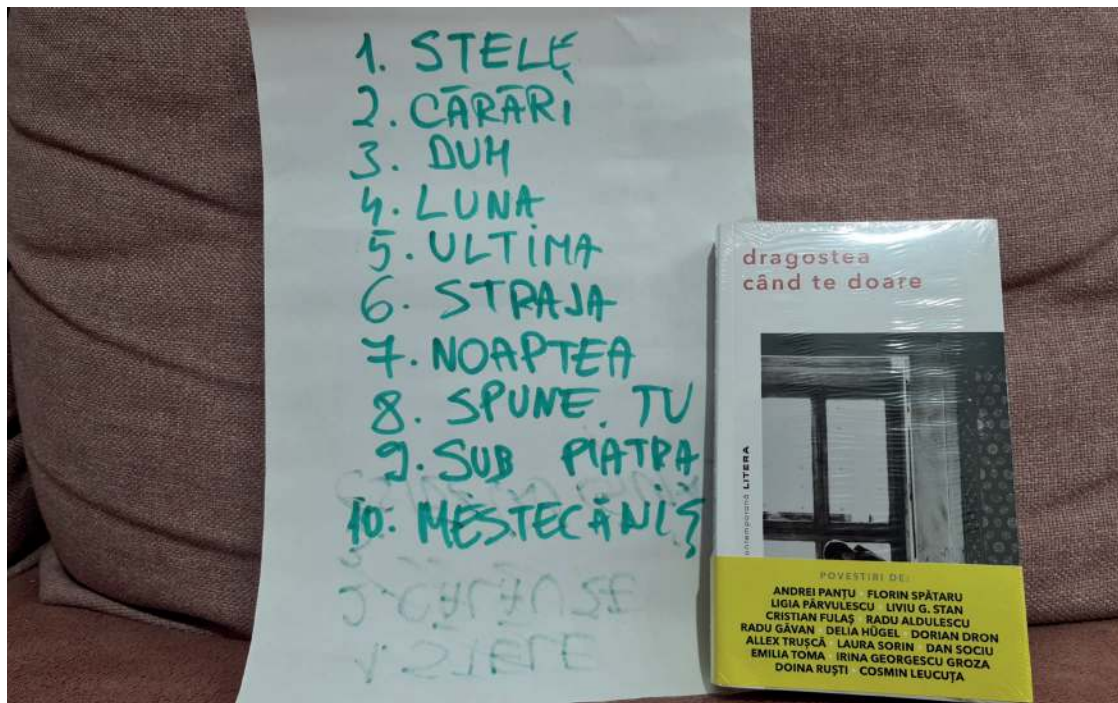 1. STELE
2. CĀRĀRI
3. DUM
4. LUNA
5. ULTIMA
6. STRAJA
7. NOAPTEA
8. SPUNE TU
9. SUB PIATRA
10. MESTECĂNIȘ
STELE
dragostea
când te doare
LITERA
POVESTIRI DE:
ANDREI PANȚU FLORIN SPĂTARU
LIGIA PÂRVULESCU LIVIU G. STAN
CRISTIAN FULAȘ RADU ALDULESCU
RADU GĂVAN DELIA HÜGEL DORIAN DRON
ALLEX TRUȘCĂ LAURA SORIN DAN SOCIU
EMILIA TOMA IRINA GEORGESCU GROZA
DOINA RUȘTI COSMIN LEUCUȚA